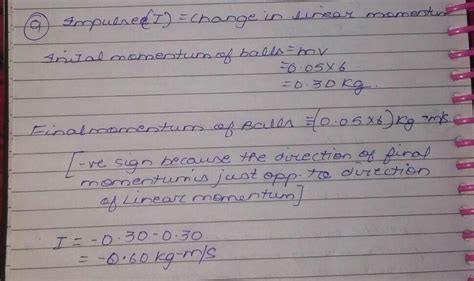 9 Impulse(I) = change in linear momentum
Initial momentum of balls = mv
= 0.05×6
= 0.30 kg.
Final momentum of Balls = (0.05×6) kg-m/s
[-ve sign because the direction of final
momentum is just opp. to direction
of Linear momentum]
I = -0.30-0.30
= -0.60 kg-m/s